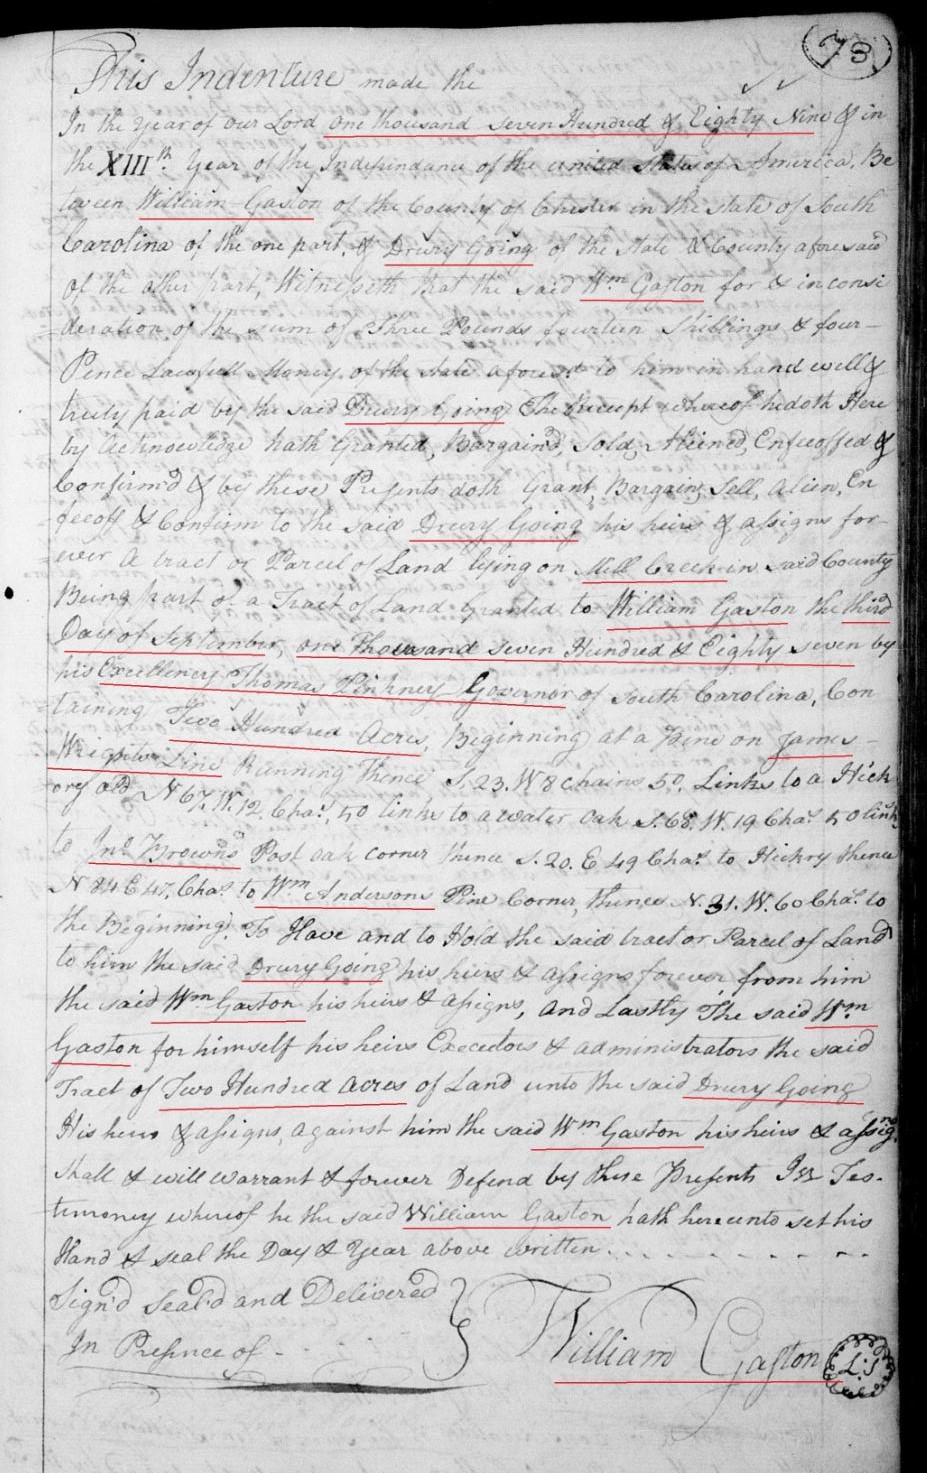 73
This Indenture made the
In the year of our Lord one thousand seven Hundred & Eighty Nine & in
the XIIIth Year of the Independance of the united States of America. Be
tween William Gaston of the County of Chester in the state of South
Carolina of the one part, & Drury Going of the state & County aforesaid
of the other part, Witnesseth that the said Wm Gaston for & in consi
deration of the sum of Three Pounds fourteen Shillings & four
Pence Lawfull Money of the state aforesd to him in hand well &
truly paid by the said Drury Going The Receipt whereof he doth Here
by Acknowledge hath Granted, Bargain'd, Sold, Aliened, Enfeoffed &
Confirm'd & by these Presents doth Grant, Bargain, Sell, Alien, En
feoff & Confirm to the said Drury Going his heirs & assigns for-
ever a tract or Parcel of Land lying on Mill Creek in said County
Being part of a Tract of Land Granted to William Gaston the third
Day of September, one Thousand seven Hundred & Eighty seven by
his Excellency Thomas Pinkney Governor of South Carolina, Con
taining Two Hundred Acres, Beginning at a Pine on James
Line Running Thence S. 23. W 8 chains 50 Links to a Hick
ory old N 67. W. 12. Chas, 50 links to a water oak S. 68. W. 19 Chas 50 links
to Jno Brown's Post oak corner thence S. 20. E 49 Chas to Hickry thence
N 84 E 47, Chas to Wm Andersons Pine Corner, thence N. 31. W. 60 Chas to
the Beginning. To Have and to Hold the said tract or Parcel of Land
to him the said Drury Going his heirs & assigns forever from him
the said Wm Gaston his heirs & assigns, and Lastly The said Wm
Gaston for himself his heirs Executors & administrators the said
Tract of Two Hundred acres of Land unto the said Drury Going
His heirs & assigns, against him the said Wm Gaston his heirs & assigns
shall & will warrant & forever Defend by these Presents In Tes-
timoney whereof he the said William Gaston hath hereunto set his
Hand & seal the Day & Year above written
Sign'd Seal'd and Delivered
In Presince of
William Gaston L.S